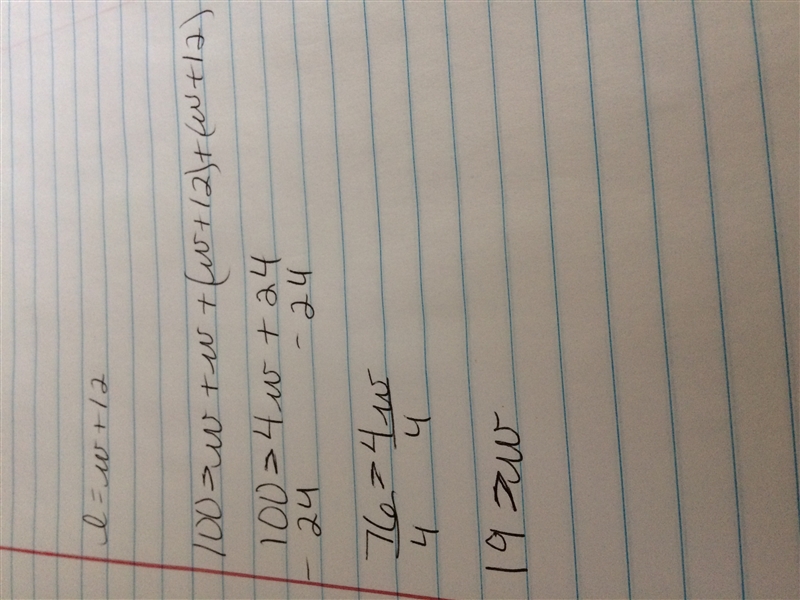 l = w + 12
100 > w + w + (w+12) + (w+12)
100 > 4w + 24
- 24 - 24
76 > 4w
4 4
19 > w